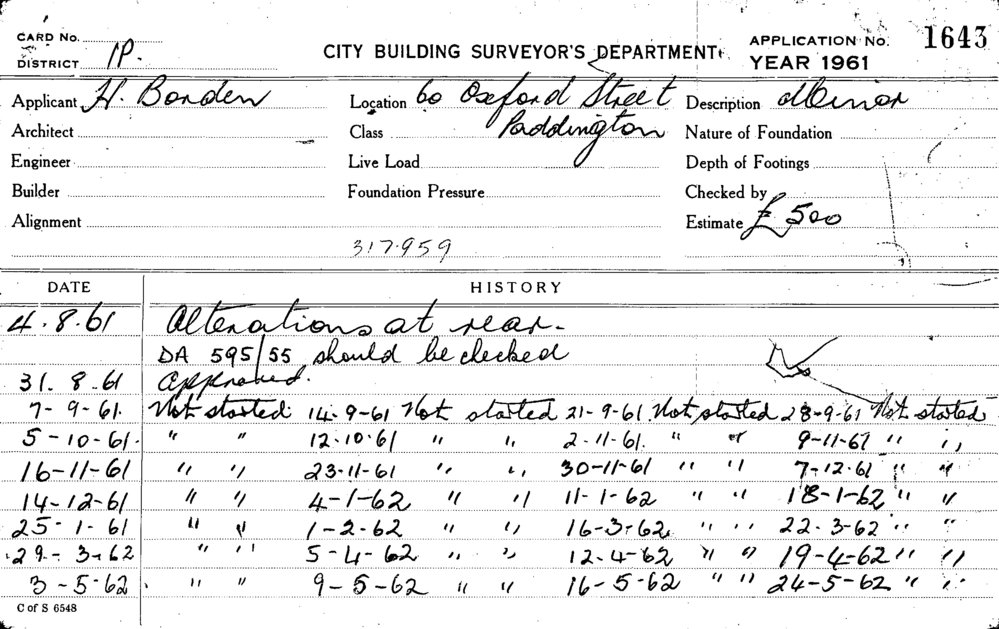 CARD No.
DISTRICT 1P.
CITY BUILDING SURVEYOR'S DEPARTMENT
APPLICATION No. 1643
YEAR 1961
Applicant H. Borden Location 60 Oxford Street Description Minor
Architect Class Paddington Nature of Foundation
Engineer Live Load Depth of Footings
Builder Foundation Pressure Checked by
Alignment Estimate £ 500
317959
DATE HISTORY
4.8.61 Alterations at rear-
DA 595/55 should be checked
31.8.61 Approved.
7-9-61. Not started 14-9-61 Not started 21-9-61. Not started 28-9-61 Not started
5-10-61. " " 12.10.61 " " 2-11-61. " " 9-11-61 " "
16-11-61 " " 23-11-61 " " 30-11-61 " " 7-12-61 " "
14-12-61 " " 4-1-62 " " 11-1-62 " " 18-1-62 " "
25-1-61 " " 1-2-62 " " 16-3-62 " " 22.3-62 " "
29-3-62 " " 5-4-62 " " 12.4-62 " " 19-4-62 " "
3-5-62 " " 9-5-62 " " 16-5-62 " " 24-5-62 " "
C of S 6548